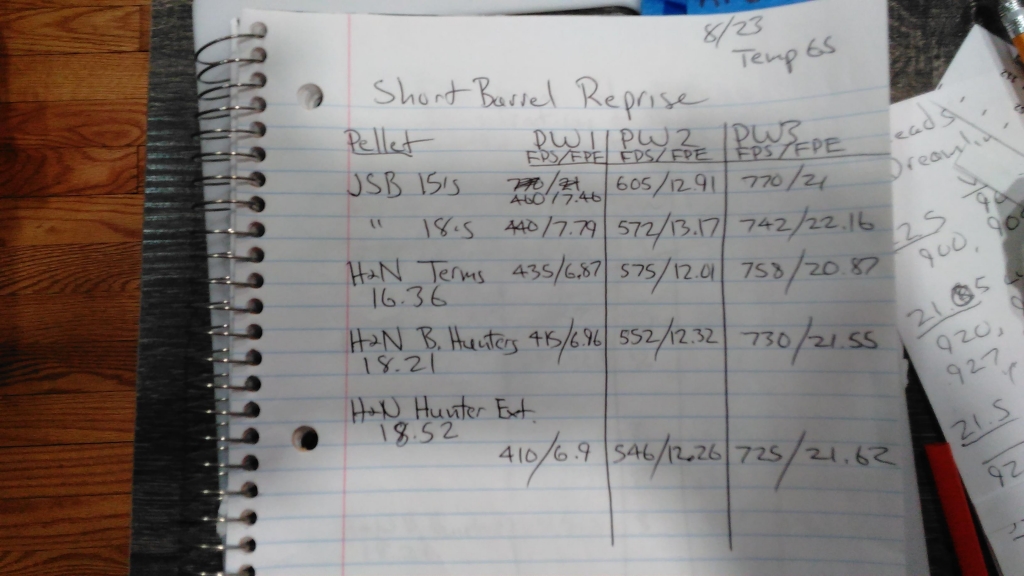 8/23
Temp 65
Short Barrel Reprise
Pellet PW1 PW2 PW3
FPS/FPE FPS/FPE FPS/FPE
JSB 15's 770/21 605/12.91 770/21
460/7.46
" 18's 440/7.79 572/13.17 742/22.16
H+N Terms 435/6.87 575/12.01 758/20.87
16.36
H+N B. Hunters 415/6.96 552/12.32 730/21.55
18.21
H+N Hunter Ext.
18.52
410/6.9 546/12.26 725/21.62
900,
920,
927,
21.5